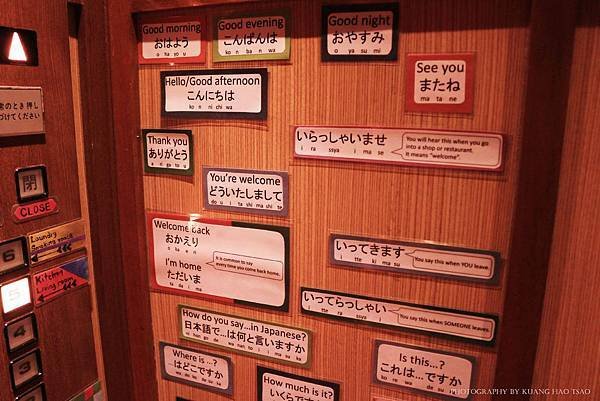 Good morning
おはよう
o ha yo u
Good evening
こんばんは
ko n ba n wa
Good night
おやすみ
o ya su mi
See you
またね
ma ta ne
Hello/Good afternoon
こんにちは
ko n ni chi wa
のとき押し
づけてください
Thank you
ありがとう
a ri ga to u
いらっしゃいませ
i ra ssya i ma se
You will hear this when you go
into a shop or restaurant.
It means "welcome".
You're welcome
どういたしまして
do u i ta shi ma shi te
閉
CLOSE
Welcome back
おかえり
o ka e ri
I'm home
ただいま
ta da i ma
It is common to say
every time you come back home.
いってきます
i tte ki ma su
You say this when YOU leave.
いってらっしゃい
i tte ra ssya i
You say this when SOMEONE leaves.
Laundry
Smoking
6
5
4
3
Kitchen
Living
How do you say...in Japanese?
日本語で...は何と言いますか
Where is ...?
...はどこですか
Is this...?
これは...ですか
ko re wa de su ka
How much is it?
いくらですか
PHOTOGRAPHY BY KUANG HAO TSAO